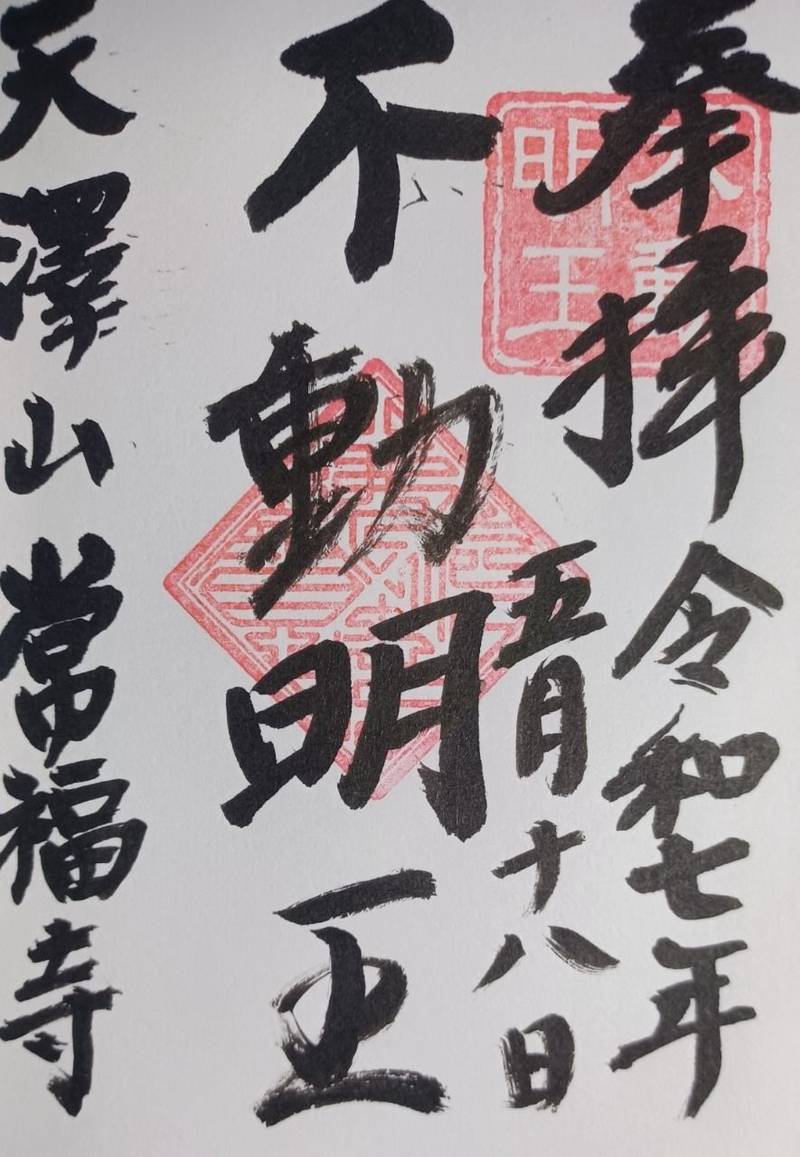 奉拝 令和七年
五月十八日
不動明王
天澤山常福寺
不動明王